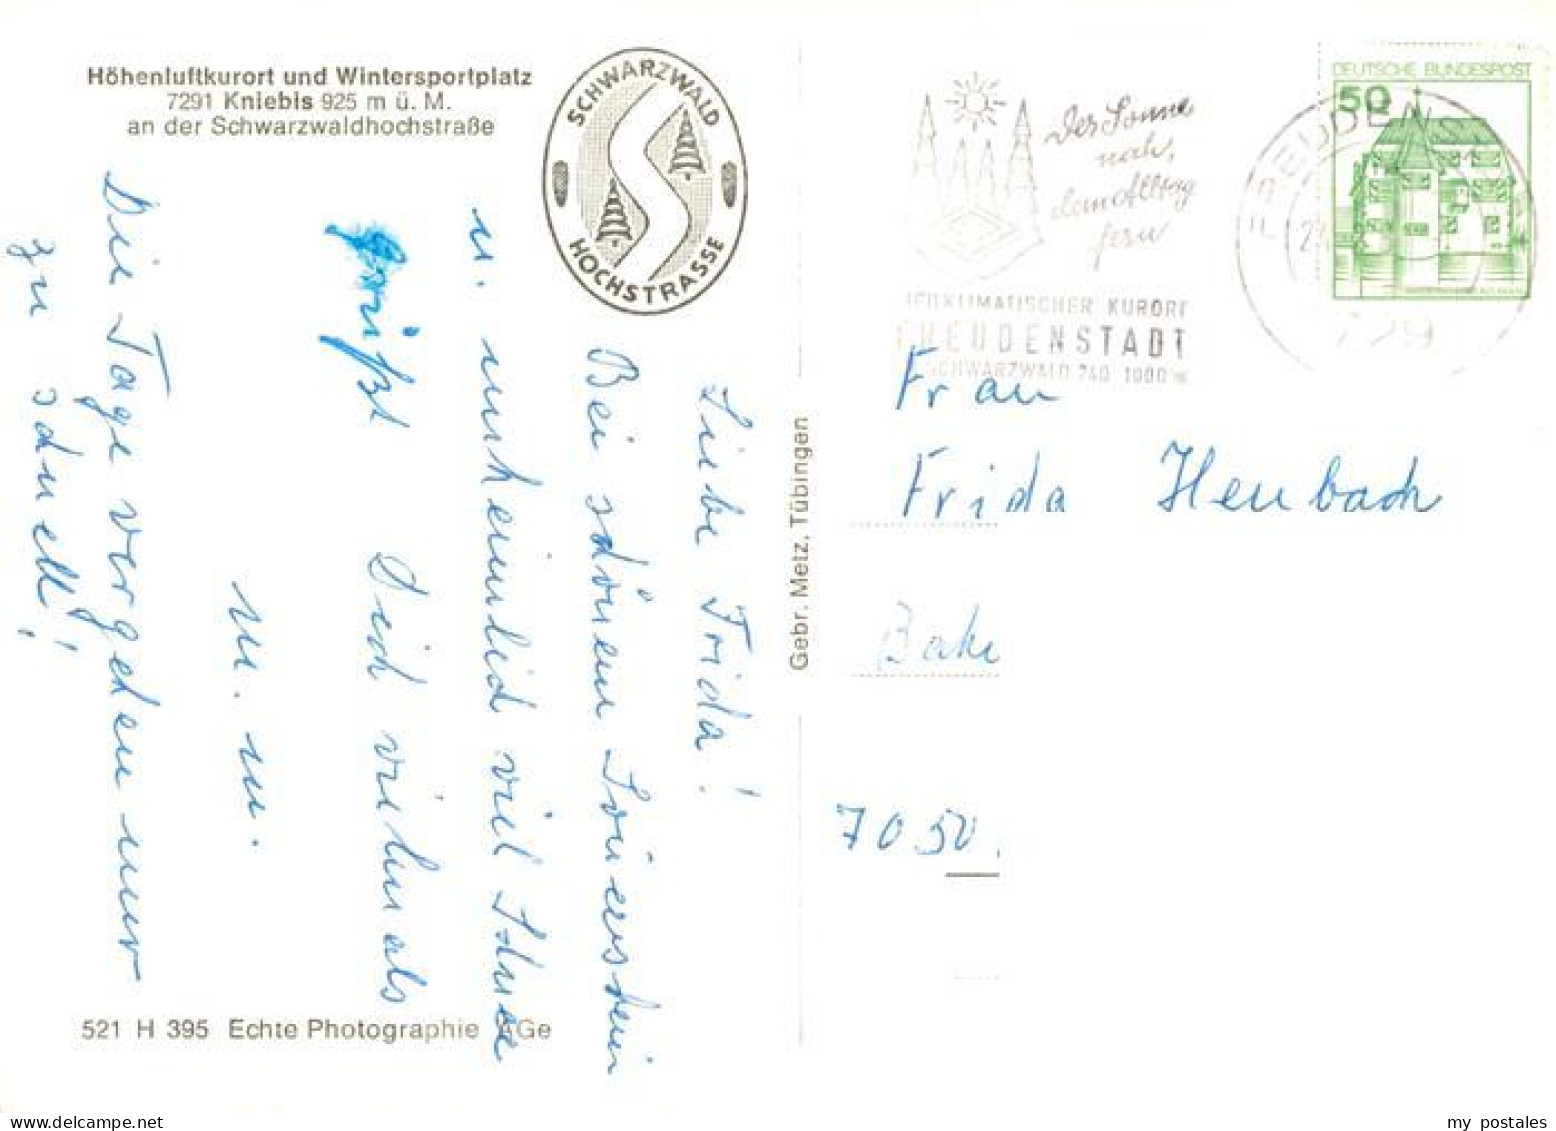 Höhenluftkurort und Wintersportplatz
7291 Kniebis 925 m ü. M.
an der Schwarzwaldhochstraße
SCHWARZWALD
HOCHSTRASSE
Liebe Frida!
Bei schönem Sonnenschein
u. unheimlich viel Schnee
grüßt Dich vielmals
M. M.
Die Tage vergehen nur
zu schnell!
521 H 395 Echte Photographie AGe
Gebr. Metz, Tübingen
Der Sonne
nah,
dem Alltag
fern
HEILKLIMATISCHER KURORT
FREUDENSTADT
SCHWARZWALD 740 1000 m
FREUDENST
729
DEUTSCHE BUNDESPOST
50
Frau
Frida Heubach
7050.
my postales